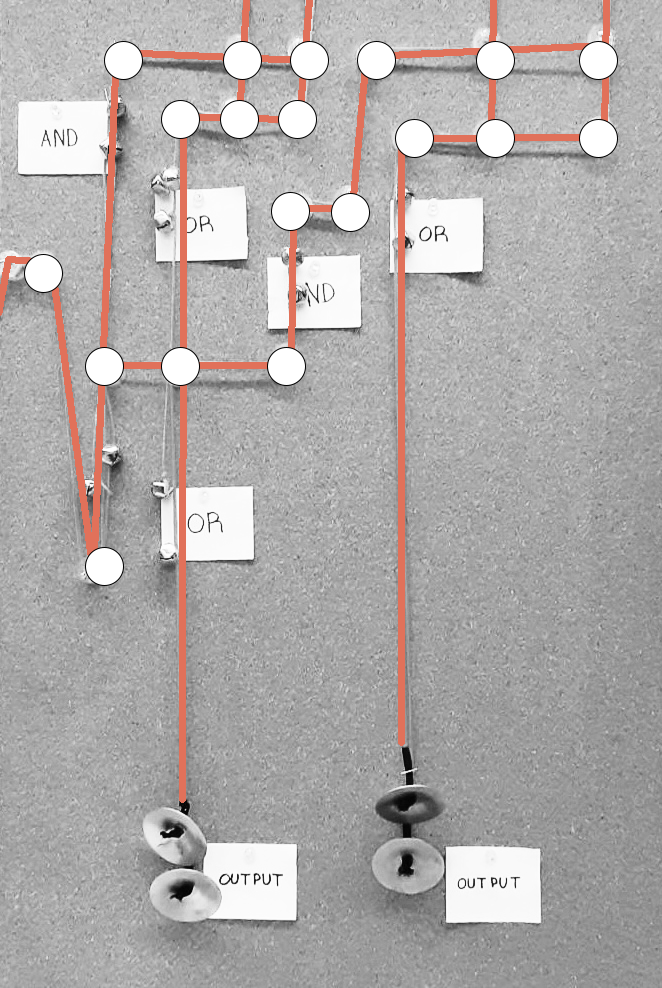 AND
OR
OR
AND
OR
OUTPUT
OUTPUT